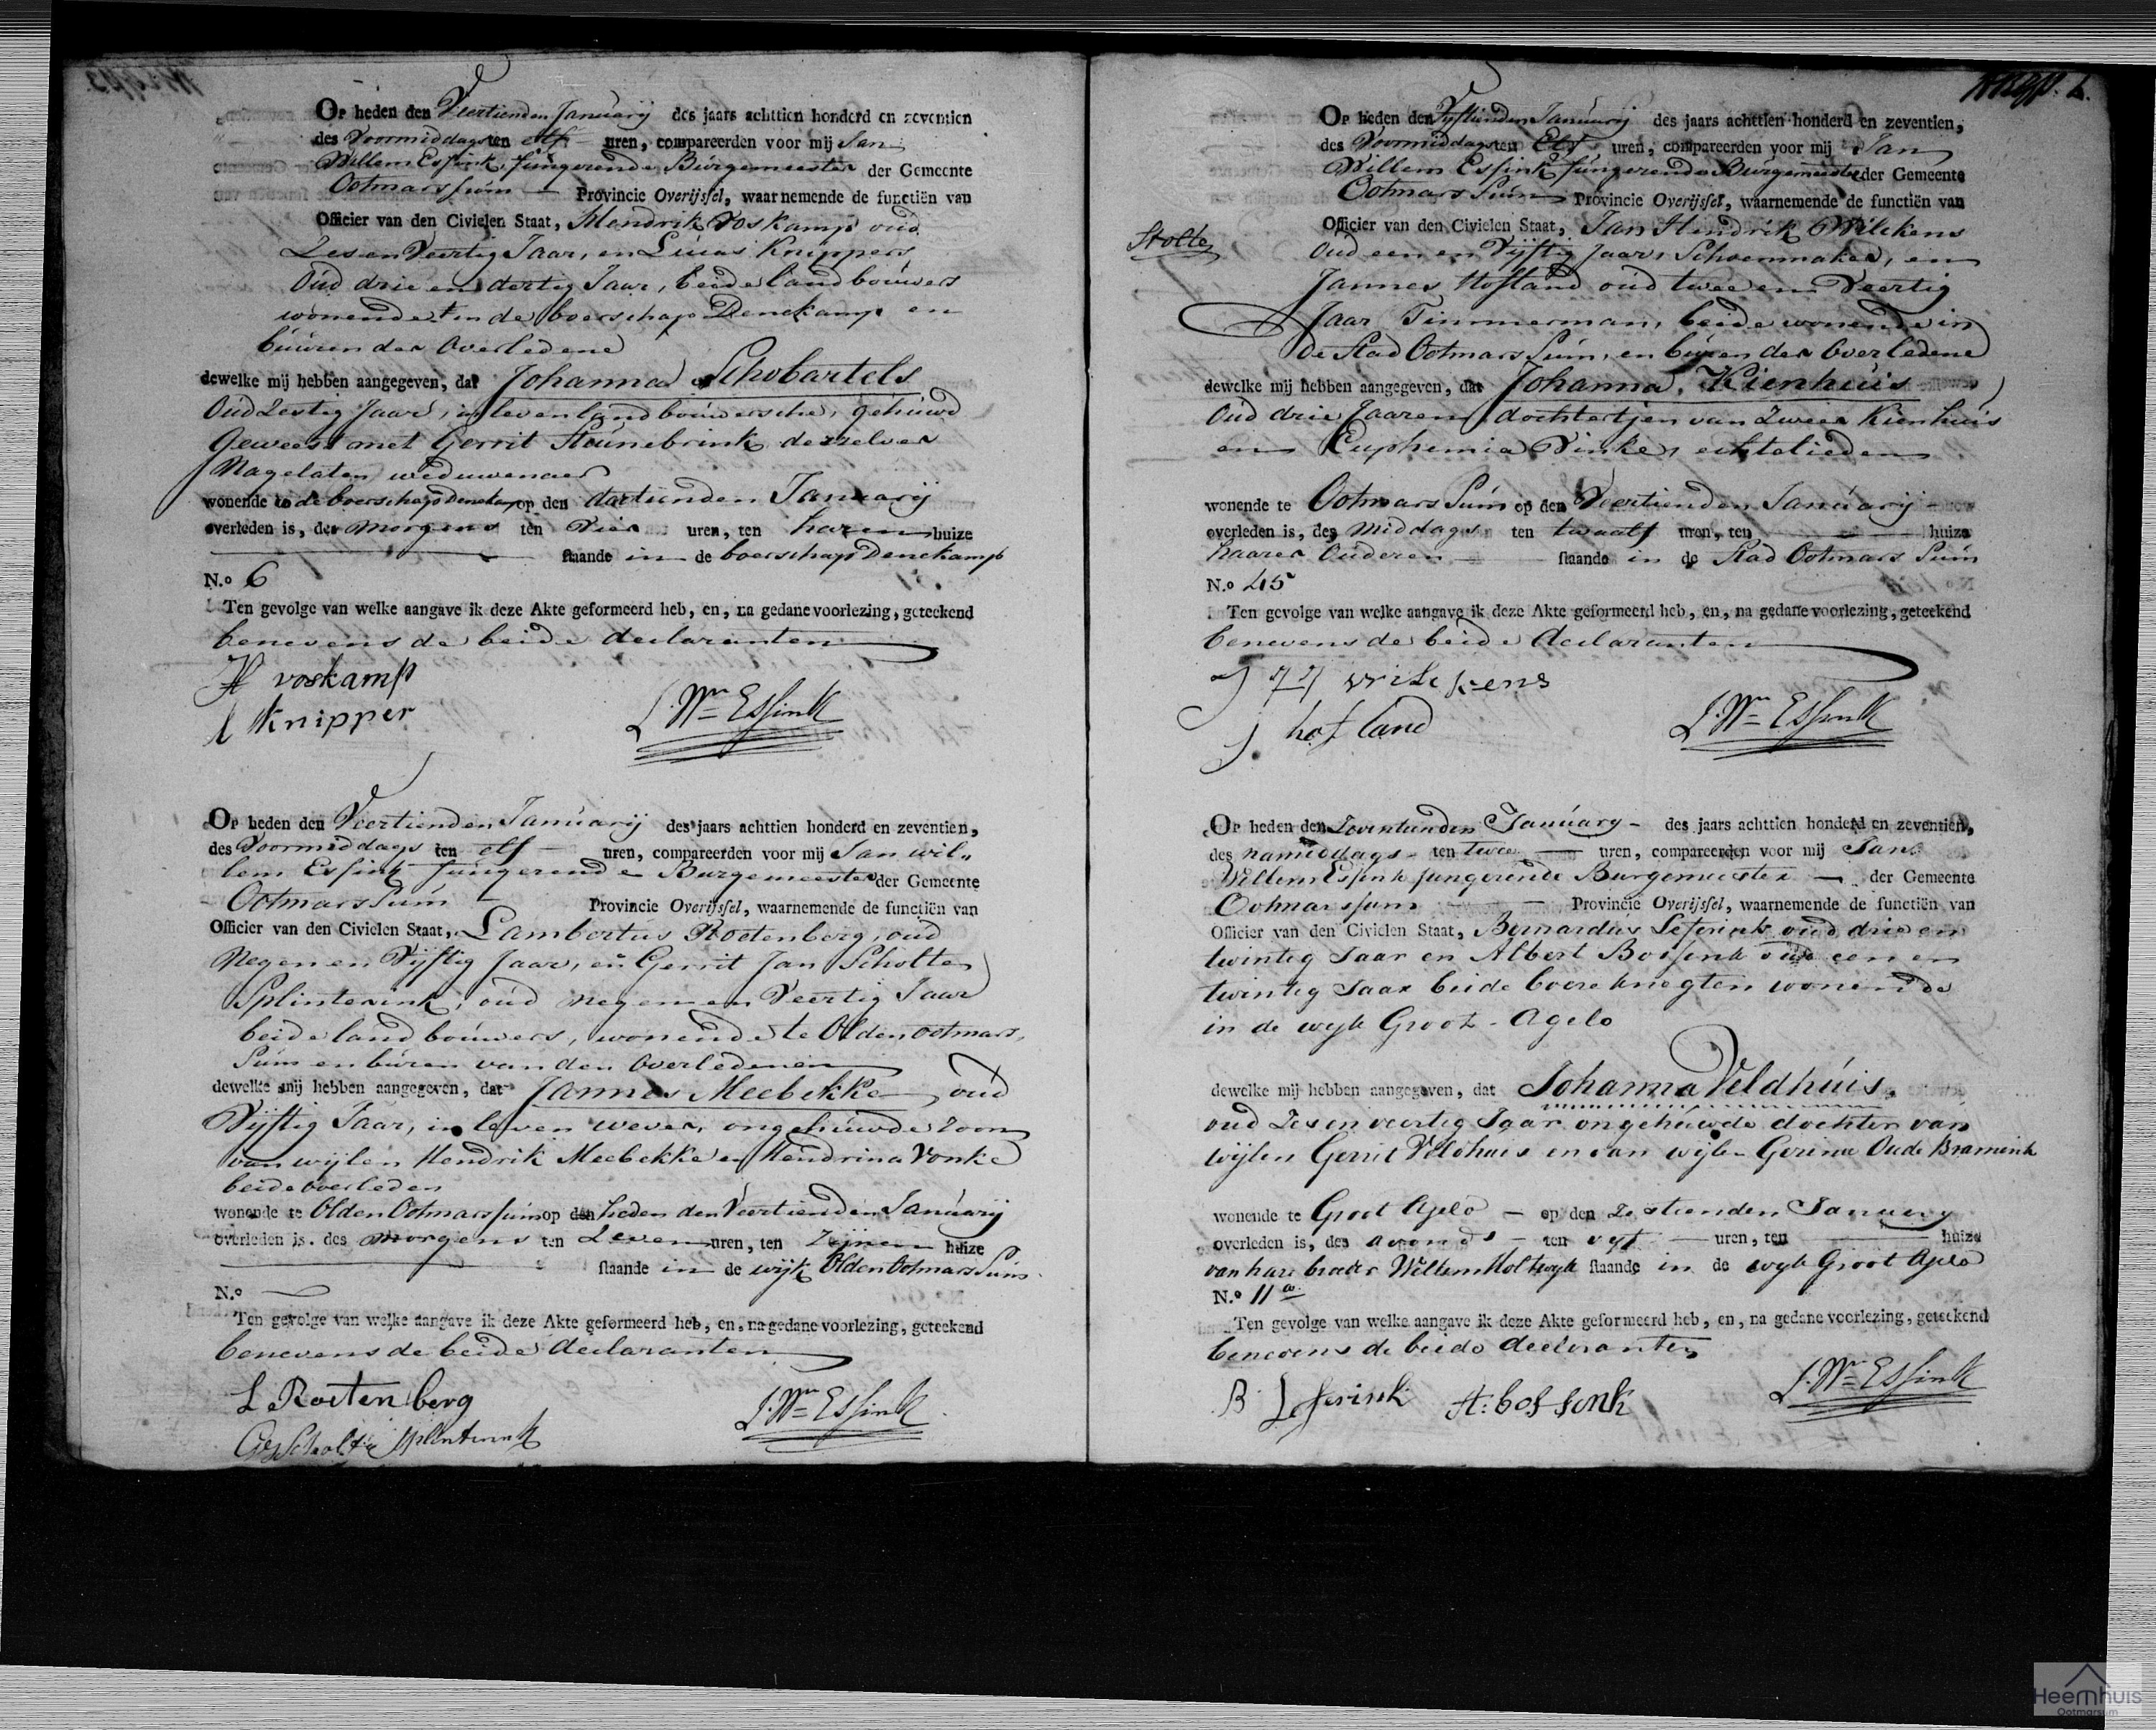 Op heden den Veertienden Januarij des jaars achttien honderd en zeventien
des Voormiddags ten elf uren, compareerden voor mij Jan
Willem Essink, fungerende Burgemeester der Gemeente
Ootmarssum Provincie Overijssel, waarnemende de functiën van
Officier van den Civielen Staat, Hendrik Voskamp oud
Zes en Veertig Jaar, en Lucas Knippers
Oud drie en dertig Jaar, beide landbouwers
wonende in de boerschap Denekamp en
buuren der Overledene
dewelke mij hebben aangegeven, dat Johanna Schobartels
Oud Zestig Jaar, in leven landbouwersche, gehuwd
Geweest met Gerrit Steunebrink deszelver
Nagelaten weduwenaer
wonende te de boerschap Denekamp op den dertienden Januarij
overleden is, des morgens ten Vier uren, ten haren huize
staande in de boerschap Denekamp
N.o 6
Ten gevolge van welke aangave ik deze Akte geformeerd heb, en, na gedane voorlezing, geteekend
benevens de beide declaranten
H voskamp
l Knipper
J. Wm Essink
Op heden den Veertienden Januarij des jaars achttien honderd en zeventien,
des Voormiddags ten elf uren, compareerden voor mij Jan wil„
lem Essink fungerende Burgemeester der Gemeente
Ootmarssum Provincie Overijssel, waarnemende de functiën van
Officier van den Civielen Staat, Lambertus Roetenberg, oud
Negen en Vijftig Jaar, en Gerrit Jan Scholte
Splinterink, oud negen en Veertig Jaar
beide landbouwers, wonende te Olden ootmars,
Sum en buren van den Overledenen
dewelke mij hebben aangegeven, dat Jannes Meebekke oud
Vijftig Jaar, in leven wever, ongehuwde Zoon
van wijlen Hendrik Meebekke en Hendrina Vonke
beide overleden
wonende te Olden Ootmarssum op den heden den Veertienden Januarij
overleden is, des morgens ten Zeven uren, ten Zijnen huize
staande in de wijk Olden Ootmars Sum
N.o
Ten gevolge van welke aangave ik deze Akte geformeerd heb, en, na gedane voorlezing, geteekend
benevens de beide declaranten
L Roetenberg
J. Wm Essink
GJ Scholte Splinterink
Stolte
Op heden den Vijftienden Januarij des jaars achttien honderd en zeventien,
des Voormiddags ten Elf uren, compareerden voor mij Jan
Willem Essink fungerende Burgemeester der Gemeente
Ootmars Sum Provincie Overijssel, waarnemende de functiën van
Officier van den Civielen Staat, Jan Hendrik Wilckens
Oud een en Vijftig Jaar, Schoenmaker, en
Jannes Hofland oud twee en Veertig
Jaar Timmerman, beide wonende in
de Stad Ootmars Sum, en buren der Overledene
dewelke mij hebben aangegeven, dat Johanna Kienhuis
Oud drie Jaaren, dochtertjen van Zweer Kienhuis
en Euphemia Vinke, echtelieden
wonende te Ootmars Sum op den Veertienden Januarij
overleden is, des middags ten twaalf uren, ten huize
haarer Ouderen staande in de Stad Ootmars Sum
N.o 45
Ten gevolge van welke aangave ik deze Akte geformeerd heb, en, na gedane voorlezing, geteekend
benevens de beide declaranten
j hofland
J. Wm Essink
Op heden den Zeventienden January des jaars achttien honderd en zeventien,
des namiddags ten twee uren, compareerden voor mij Jan
Willem Essink fungerende Burgemeester der Gemeente
Ootmarssum Provincie Overijssel, waarnemende de functiën van
Officier van den Civielen Staat, Bernardus Leferink oud drie en
twintig Jaar en Albert Bossink oud een en
twintig Jaar beide boere knegten wonende
in de wyk Groot-Agelo
dewelke mij hebben aangegeven, dat Johanna Veldhuis,
oud Zes en veertig Jaar ongehuwde dochter van
wijlen Gerrit Veldhuis en van wijlen Gerina Oude Bramink
wonende te Groot Agelo op den Zestienden January
overleden is, des avonds ten vyf uren, ten huize
van hare broeder Willem Holtwyk staande in de wyk Groot Agelo
N.o 11 a.
Ten gevolge van welke aangave ik deze Akte geformeerd heb, en, na gedane voorlezing, geteekend
benevens de beide declaranten
B Leferink
A: bossink
J. Wm Essink
Heemhuis
Ootmarsum